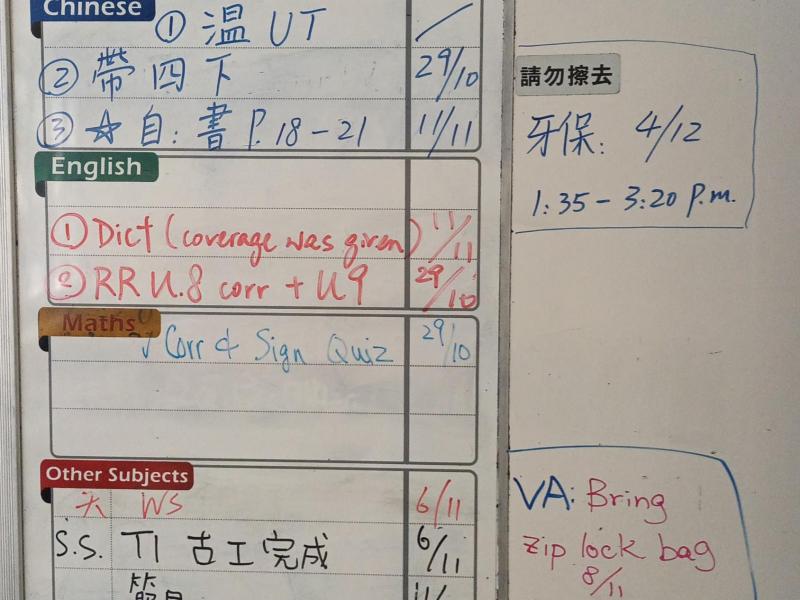 Chinese
① 温 UT /
② 帶 四 下 29/10
③ ☆ 自: 書 P.18-21 11/11
English
① Dict (coverage was given) 11/11
② RR U.8 corr + U9 29/10
Maths
√ Corr & Sign Quiz 29/10
Other Subjects
WS 6/11
S.S. T1 古工完成 6/11
請勿擦去
牙保: 4/12
1:35-3:20 P.m.
VA: Bring
zip lock bag
8/11